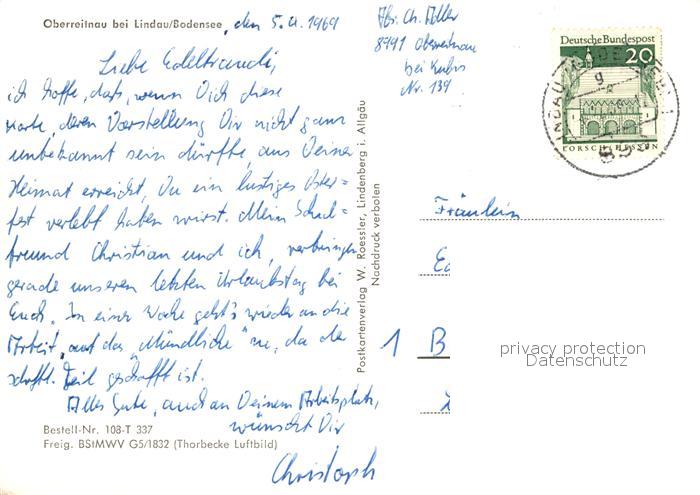 Oberreitnau bei Lindau/Bodensee, den 5.4.1969
Liebe Edeltraudi,
ich hoffe, dass, wenn Dich diese
Karte, deren Vorstellung Dir nicht ganz
unbekannt sein dürfte, aus Deiner
Heimat erreicht, Du ein lustiges Oster=
fest verlebt haben wirst. Mein Schul=
freund Christian und ich, verbringen
gerade unseren letzten Urlaubstag bei
Euch. In einer Woche geht's wieder an die
Arbeit, auf das „Mündliche" zu, da der
schriftl. Teil geschafft ist.
Alles Gute, auch an Deinem Arbeitsplatz,
wünscht Dir
Christoph
Bestell-Nr. 108-T 337
Freig. BStMWV G5/1832 (Thorbecke Luftbild)
Postkartenverlag W. Roessler, Lindenberg i. Allgäu
Nachdruck verboten
Abs. Ch. Adler
8991 Oberreitnau
bei
Nr. 139
Deutsche Bundespost
20
LORSCH/HESSEN
LINDAU
Fräulein
Ed
1 B
privacy protection
Datenschutz